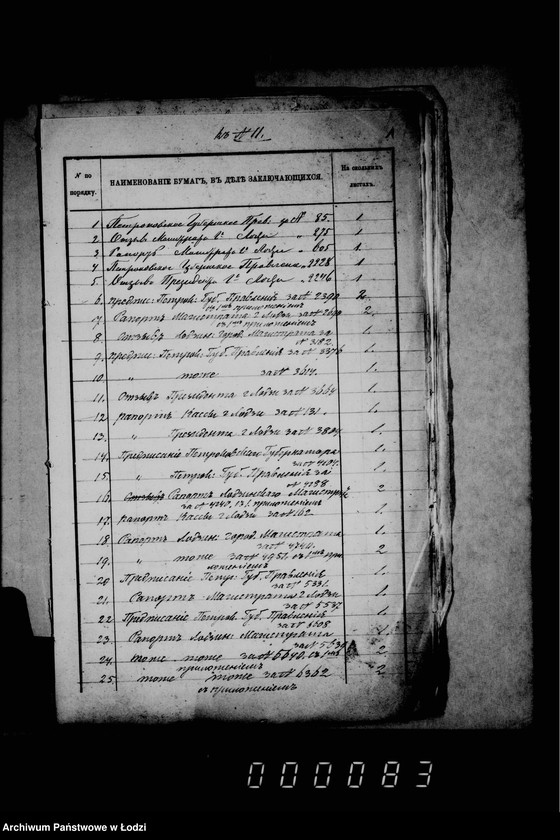 къ № 11.
№ по порядку.
НАИМЕНОВАНІЕ БУМАГЪ, ВЪ ДѢЛѢ ЗАКЛЮЧАЮЩИХСЯ.
На сколькихъ листахъ.
1 Петроковское Губернское Прав. за № 85. 1
2 Отзывъ Магистрата г. Лодзи " 275 1
3 Рапортъ Магистрата г. Лодзи " 605 1
4 Петроковское Губернское Правленіе " 2228 1
5. Отзывъ Президента г. Лодзи " 2246 1
6. предпис. Петров. Губ. Правленія за № 2390 2.
съ 1 приложеніемъ
7 Рапортъ Магистрата г Лодзи за № 2690 2.
съ 1 приложеніемъ
8. Отзывъ Лодзин. Город. Магистрата за 1.
№ 3182.
9. предпис. Петров. Губ. Правленія за № 3376 1.
10. " тоже за № 3614. 1.
11. Отзывъ Президента г Лодзи за № 3664 1.
12. рапортъ Кассы г Лодзи за № 131. 1.
13. " Президента г Лодзи за № 3804 1.
14. Предписаніе Петроковскаго Губернатора 1.
за № 4104.
15. " Петров. Губ. Правленія за 1.
№ 4188
16. Рапортъ Лодзинскаго Магистрата 2
за № 4240, съ 1. приложеніемъ
17. рапортъ Кассы г Лодзи за № 162. 1.
18 Рапортъ Лодзин. Город. Магистрата 1.
за № 4744.
19. " тоже за № 4957. съ 1 при 2
ложеніемъ
20 Предписаніе Петр. Губ. Правленія 1.
за № 5331.
21. Рапортъ Магистрата г Лодзи 1.
за № 5537
22. Предписаніе Петров. Губ. Правленія 1.
за № 6608
23. Рапортъ Лодзин: Магистрата 1.
24. тоже тоже за № 6640, съ 1 2
приложеніемъ
25. тоже тоже за № 6362 2
съ приложеніемъ
000083
Archiwum Państwowe w Łodzi